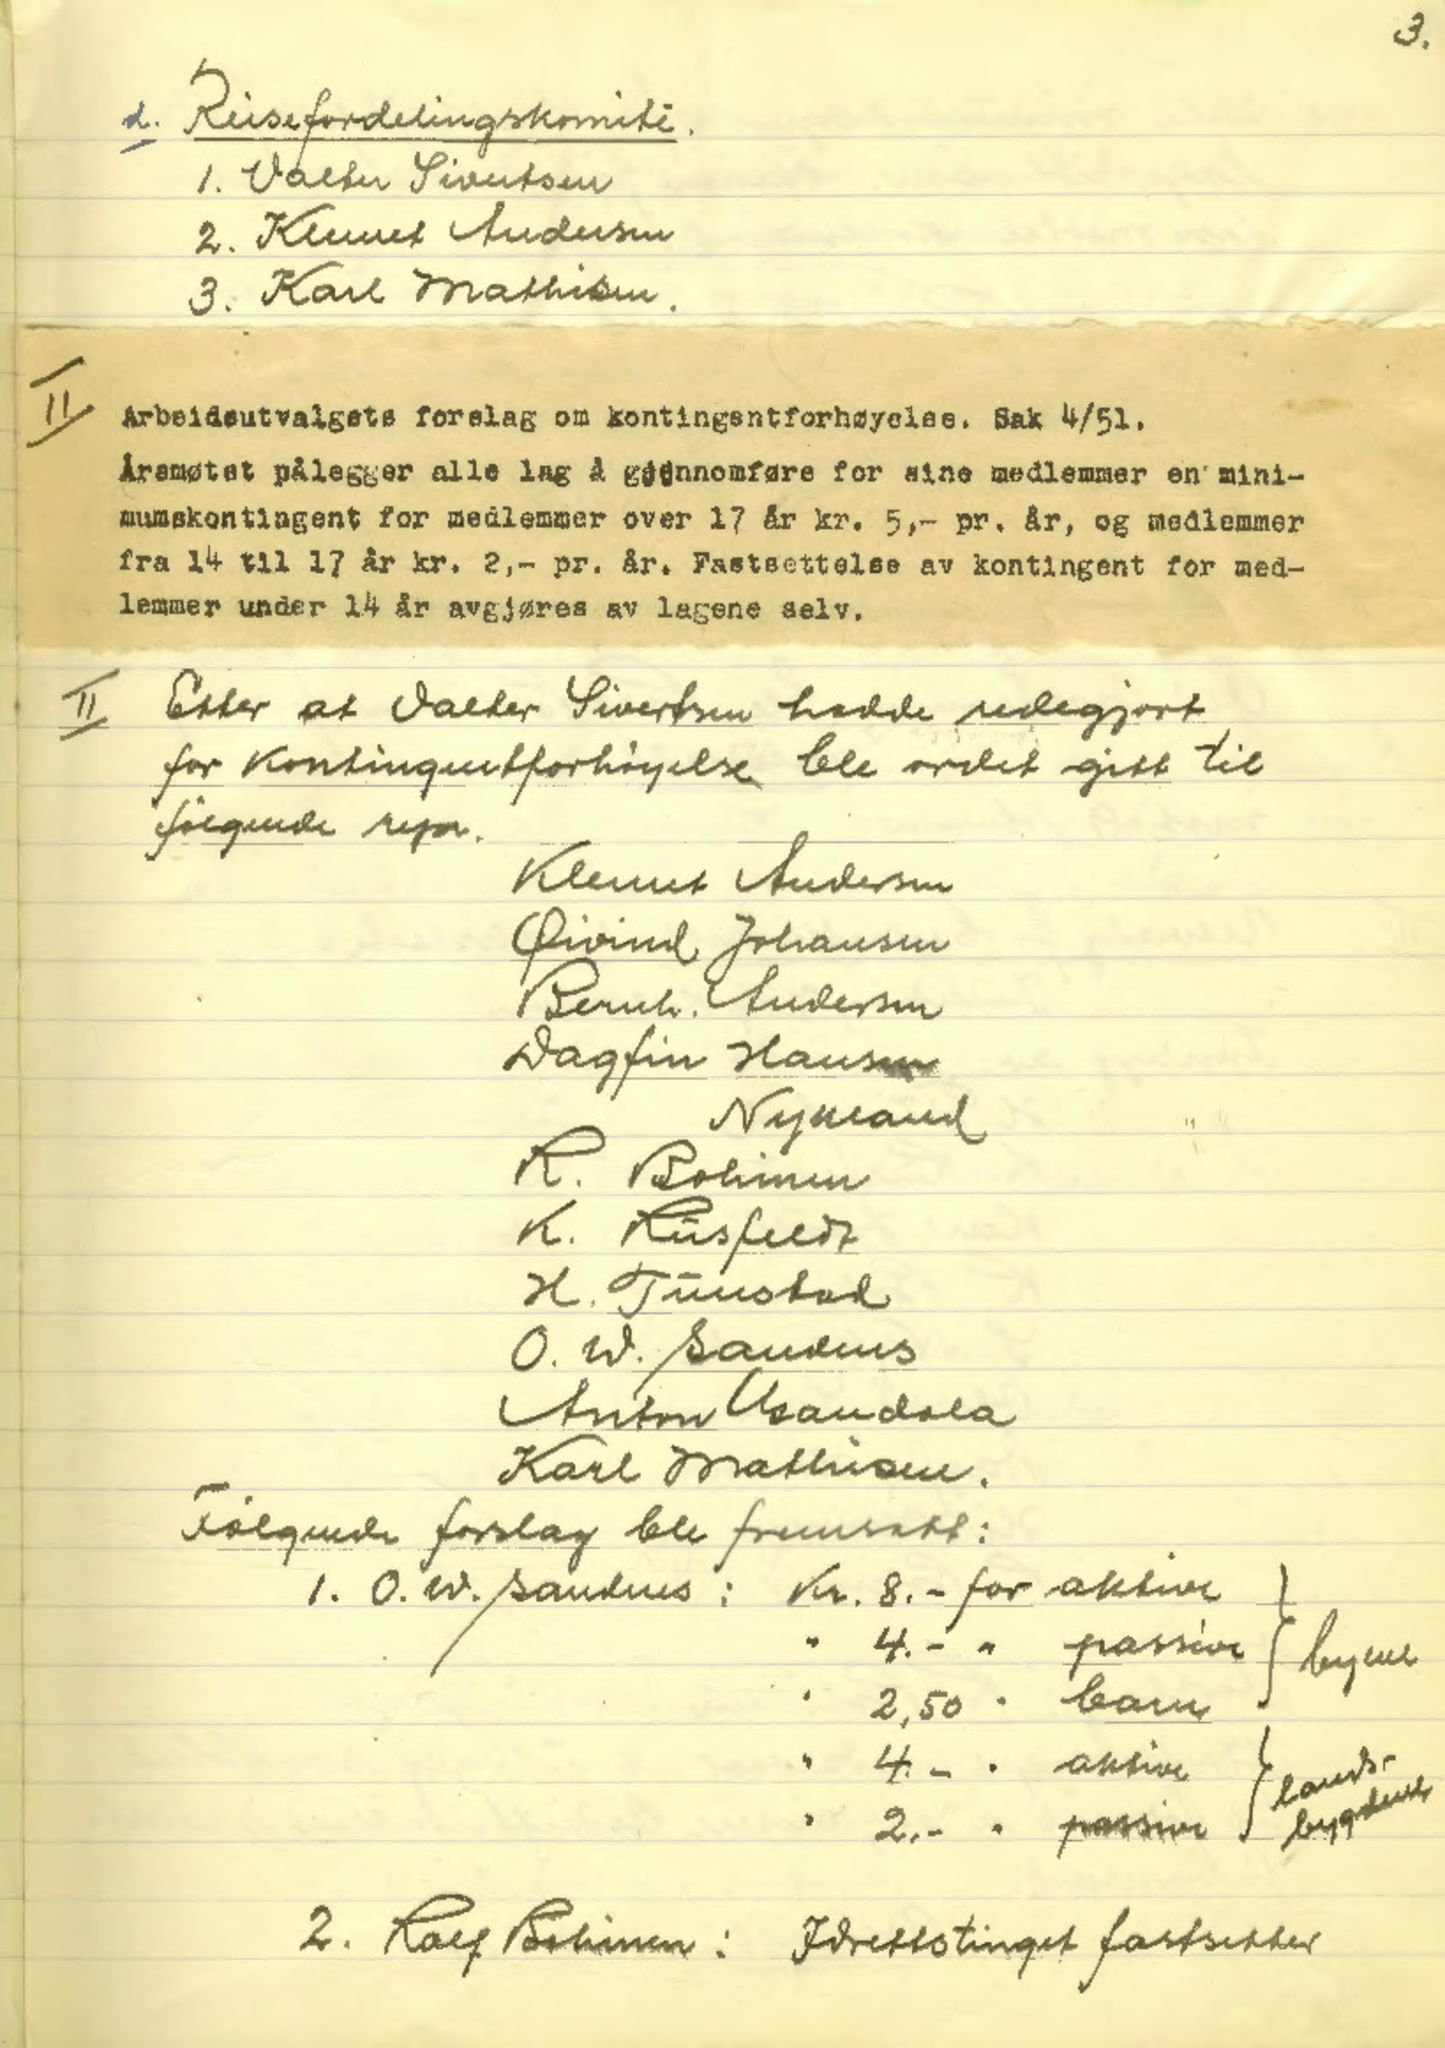 3.
d. Reisefordelingskomité.
1. Valter Sivertsen
2. Klemet Andersen
3. Karl Mathisen.
II
Arbeidsutvalgets forslag om kontingentforhøyelse. Sak 4/51.
Årsmøtet pålegger alle lag å gjennomføre for sine medlemmer en mini-
mumskontingent for medlemmer over 17 år kr. 5,- pr. år, og medlemmer
fra 14 til 17 år kr. 2,- pr. år. Fastsettelse av kontingent for med-
lemmer under 14 år avgjøres av lagene selv.
II Etter at Valter Sivertsen hadde redegjort
for kontingentforhöyelse ble ordet gitt til
følgende repr.
Klemet Andersen
Øivind Johansen
Bernh. Andersen
Dagfin Hansen
Nymand
R. Bohinen
K. Riisfeldt
H. Tunstad
O. W. Sandnes
Anton
Karl Mathisen.
Følgende forslag ble fremsatt:
1. O. W. Sandnes : Kr. 8.- for aktive
" 4.- " passive } byene
" 2,50 " barn
" 4.- " aktive } lands-
" 2.- " passive bygdene
2. Rolf Bohinen : Idrettstinget fastsetter